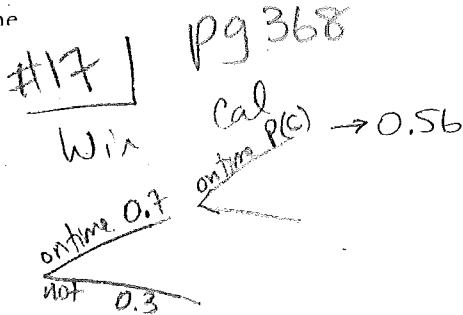 ne
#17 pg 368
Win Cal
on time P(C) → 0.56
on time 0.7
not 0.3